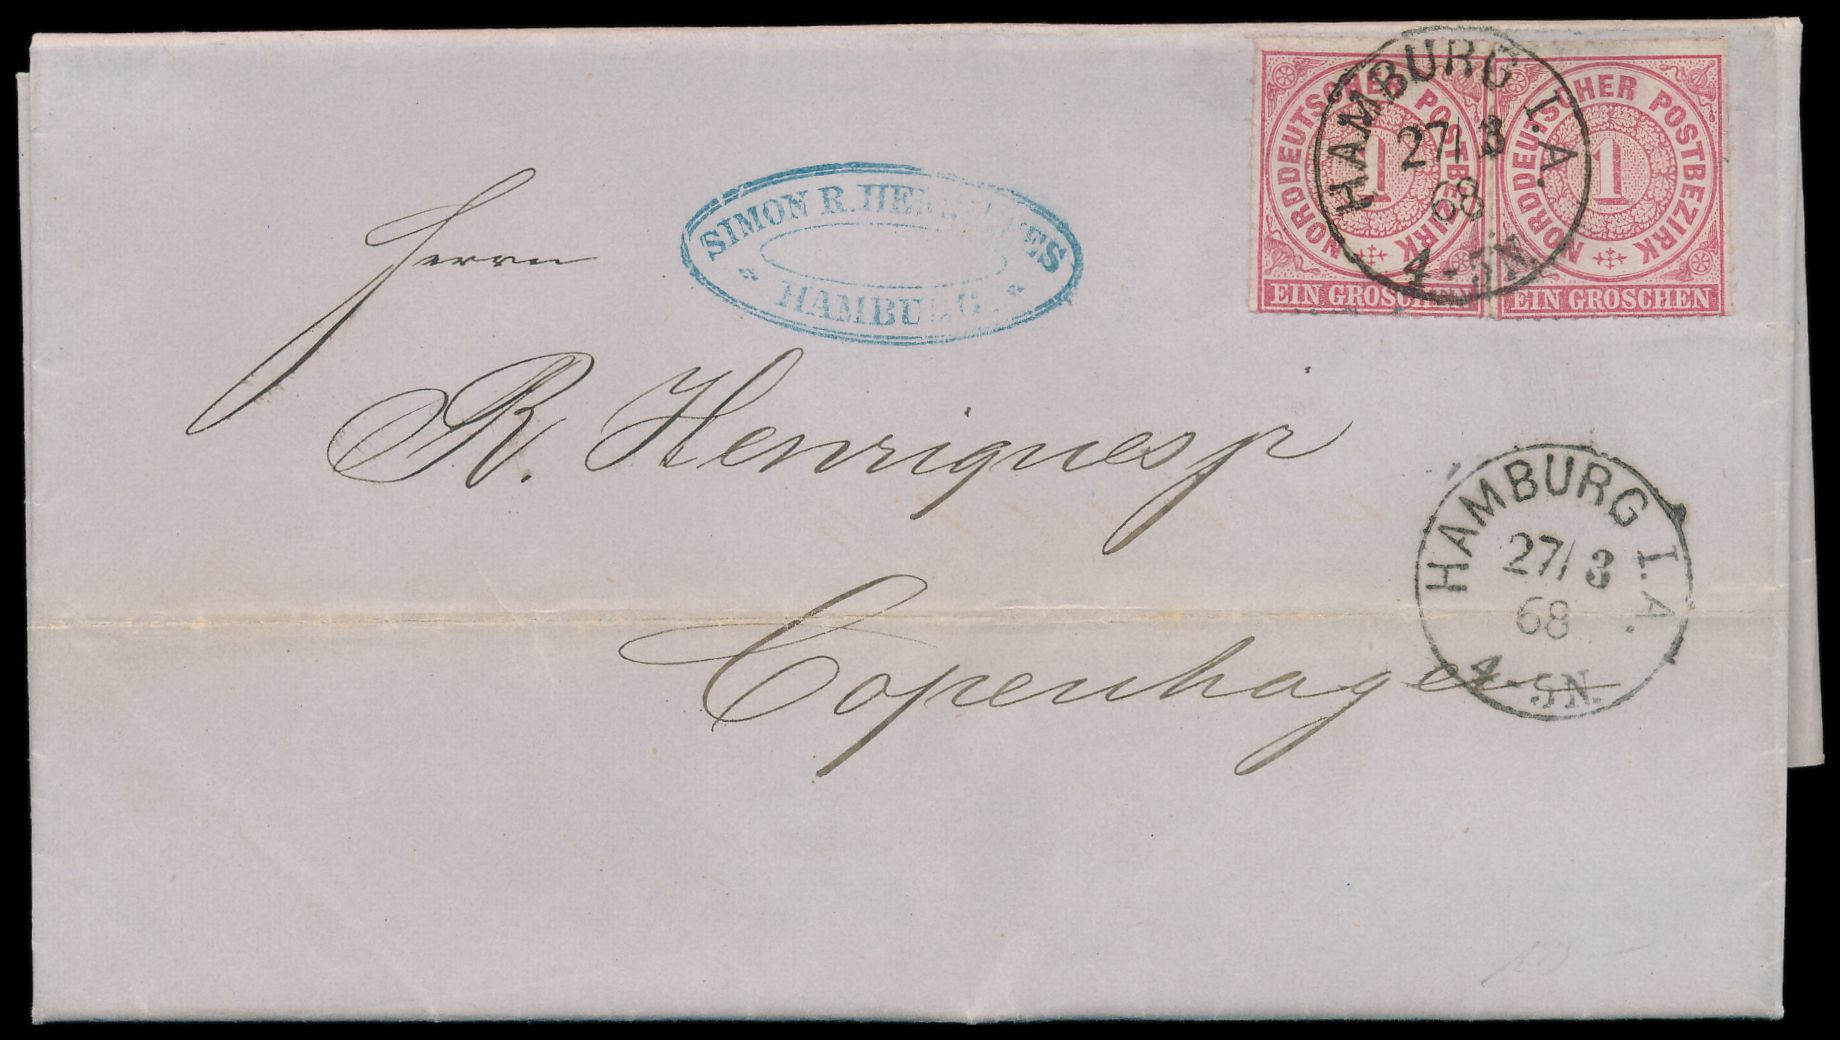 NORDDEUTSCHER POSTBEZIRK
1
EIN GROSCHEN
NORDDEUTSCHER POSTBEZIRK
1
EIN GROSCHEN
HAMBURG I.A.
27/3
68
4-5N.
SIMON R.
HAMBURG.
Herrn
R. Henriques jr
Copenhagen
HAMBURG I.A.
27/3
68
4-5N.